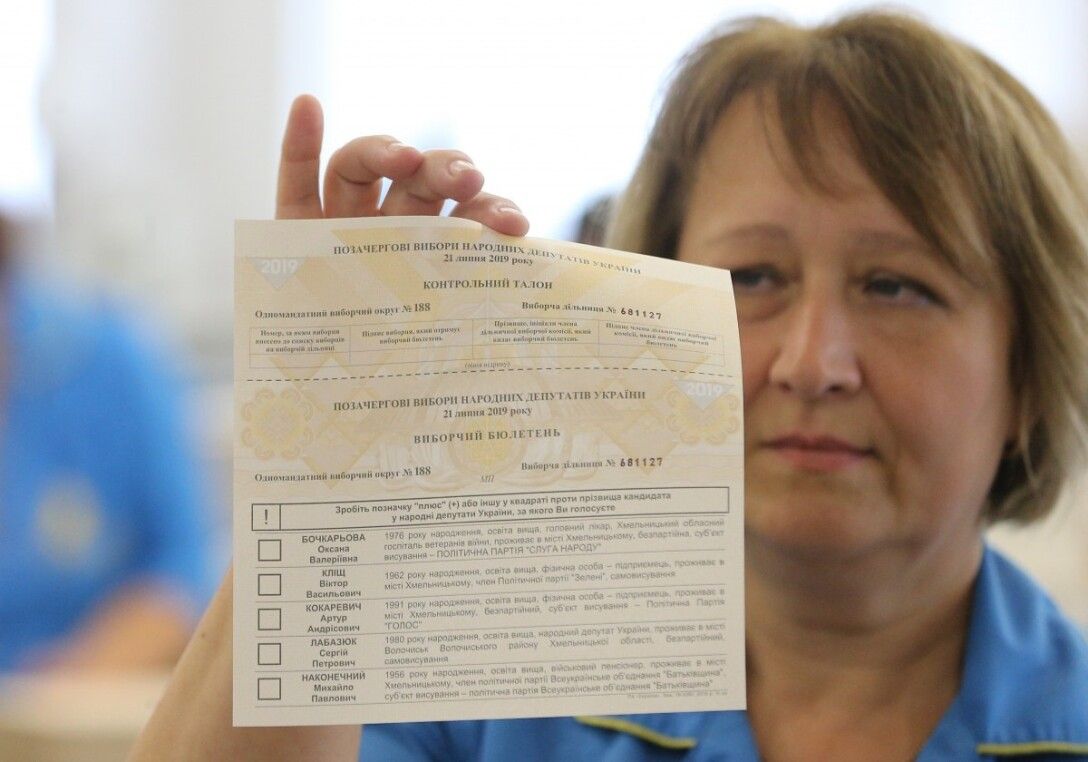 ПОЗАЧЕРГОВІ ВИБОРИ НАРОДНИХ ДЕПУТАТІВ УКРАЇНИ
21 липня 2019 року
2019
КОНТРОЛЬНИЙ ТАЛОН
Одномандатний виборчий округ № 188 Виборча дільниця № 681127
Номер, за яким виборця внесено до списку виборців на виборчій дільниці
Підпис виборця, який отримує виборчий бюлетень
Прізвище, ініціали члена дільничної виборчої комісії, який видає виборчий бюлетень
Підпис члена дільничної виборчої комісії, який видає виборчий бюлетень
(лінія відриву)
2019
ПОЗАЧЕРГОВІ ВИБОРИ НАРОДНИХ ДЕПУТАТІВ УКРАЇНИ
21 липня 2019 року
ВИБОРЧИЙ БЮЛЕТЕНЬ
Одномандатний виборчий округ № 188 Виборча дільниця № 681127
МП
! Зробіть позначку "плюс" (+) або іншу у квадраті проти прізвища кандидата
у народні депутати України, за якого Ви голосуєте
БОЧКАРЬОВА
Оксана
Валеріївна
1976 року народження, освіта вища, головний лікар, Хмельницький обласний
госпіталь ветеранів війни, проживає в місті Хмельницькому, безпартійна, суб'єкт
висування – ПОЛІТИЧНА ПАРТІЯ "СЛУГА НАРОДУ"
КЛІЩ
Віктор
Васильович
1962 року народження, освіта вища, фізична особа – підприємець, проживає в
місті Хмельницькому, член Політичної партії "Зелені", самовисування
КОКАРЕВИЧ
Артур
Андрісович
1991 року народження, освіта вища, фізична особа – підприємець, проживає в
місті Хмельницькому, безпартійний, суб'єкт висування – Політична Партія
"ГОЛОС"
ЛАБАЗЮК
Сергій
Петрович
1980 року народження, освіта вища, народний депутат України, проживає в місті
Волочиськ Волочиського району Хмельницької області, безпартійний,
самовисування
НАКОНЕЧНИЙ
Михайло
Павлович
1956 року народження, освіта вища, військовий пенсіонер, проживає в місті
Хмельницькому, член політичної партії Всеукраїнське об'єднання "Батьківщина",
суб'єкт висування – політична партія Всеукраїнське об'єднання "Батьківщина"